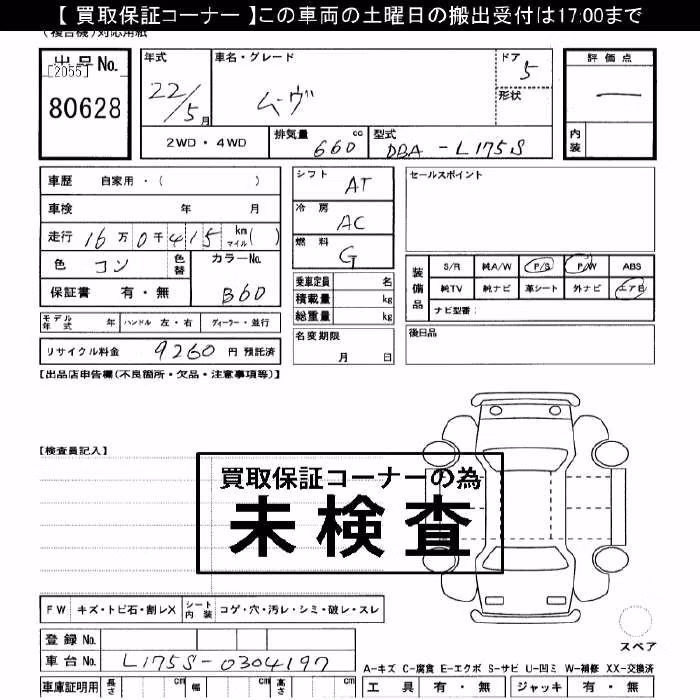 【 買取保証コーナー 】この車両の土曜日の搬出受付は17:00まで
(複合機)対応用紙
出品No. [2055] 80628
年式 22/5月
車名・グレード ムーヴ
ドア 5
形状
評価点 ―
内装
2WD・4WD
排気量 660 cc
型式 DBA-L175S
車歴 自家用・( )
車検 年 月
走行 16万0千415 km マイル( )
色 コン 色替
カラーNo. B60
保証書 有・無
シフト AT
冷房 AC
燃料 G
乗車定員 名
積載量 kg
総重量 kg
セールスポイント
装備品 S/R 純A/W P/S P/W ABS
純TV 純ナビ 革シート 外ナビ エアB
ナビ型番:
モデル年式 年 ハンドル 左・右 ディーラー・並行
名変期限 月 日
後日品
リサイクル料金 9260 円 預託済
【出品店申告欄(不良箇所・欠品・注意事項等)】
【検査員記入】
買取保証コーナーの為
未検査
FW キズ・トビ石・割レX シート内装 コゲ・穴・汚レ・シミ・破レ・スレ
スペア
登録No.
車台No. L175S-0304197
A-キズ C-腐食 E-エクボ S-サビ U-凹ミ W-補修 XX-交換済
車庫証明用 長さ cm 幅 cm 高さ cm
工具 有・無 ジャッキ 有・無